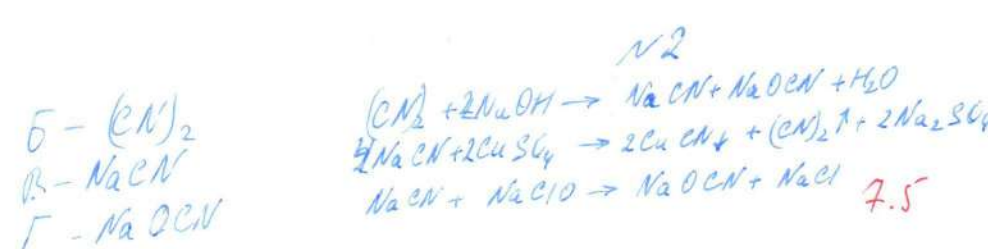 N2
Б - (CN)₂
В - NaCN
Г - NaOCN
(CN)₂ + 2NaOH → NaCN + NaOCN + H₂O
4NaCN + 2CuSO₄ → 2CuCN↓ + (CN)₂↑ + 2Na₂SO₄
NaCN + NaClO → NaOCN + NaCl
7.5